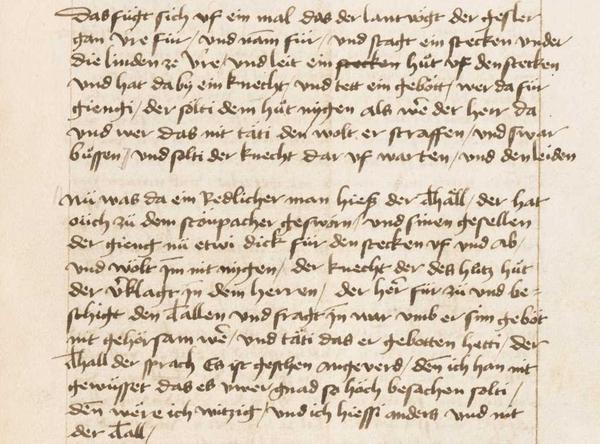 Das fůgt sich vf ein mal das der lantvögt der gesler
gan vre für / vnd nam für / vnd stagt ein stecken vnder
die linden ze vre / vnd leit ein stecken hůt vf den stecken
vnd hat da by ein knecht / vnd tett ein gebött / wer da für
giengi / der sölti dem hůt nygen als wẽ der herr da
vnd wer das nit täti den wolt er straffen / vnd swar
bůssen / vnd sölti der knecht dar vf warten / vnd den leiden
Nů was da ein Redlicher man hieß der thäll / der hat
ouch zů dem stöupacher gesworn / vnd sinen gesellen
der gieng nů etwi dick für den stecken vf vnd ab /
vnd wolt jm nit nygen / der knecht der des hůtz hůt
der v̈klagt jn dem herren / der her für zů vnd be-
schigt den tallen vnd fragt jn war vmb er sim gebött
nit gehörsam wẽ / vnd täti das er gebotten hetti / der
thall der sprach Es ist geschen angeverd / den̄ ich han nit
gewüsset das es v́wer gnad so höch besachen sölti /
den̄ were ich witzig / vnd ich hiessi anders vnd nit
der tall /